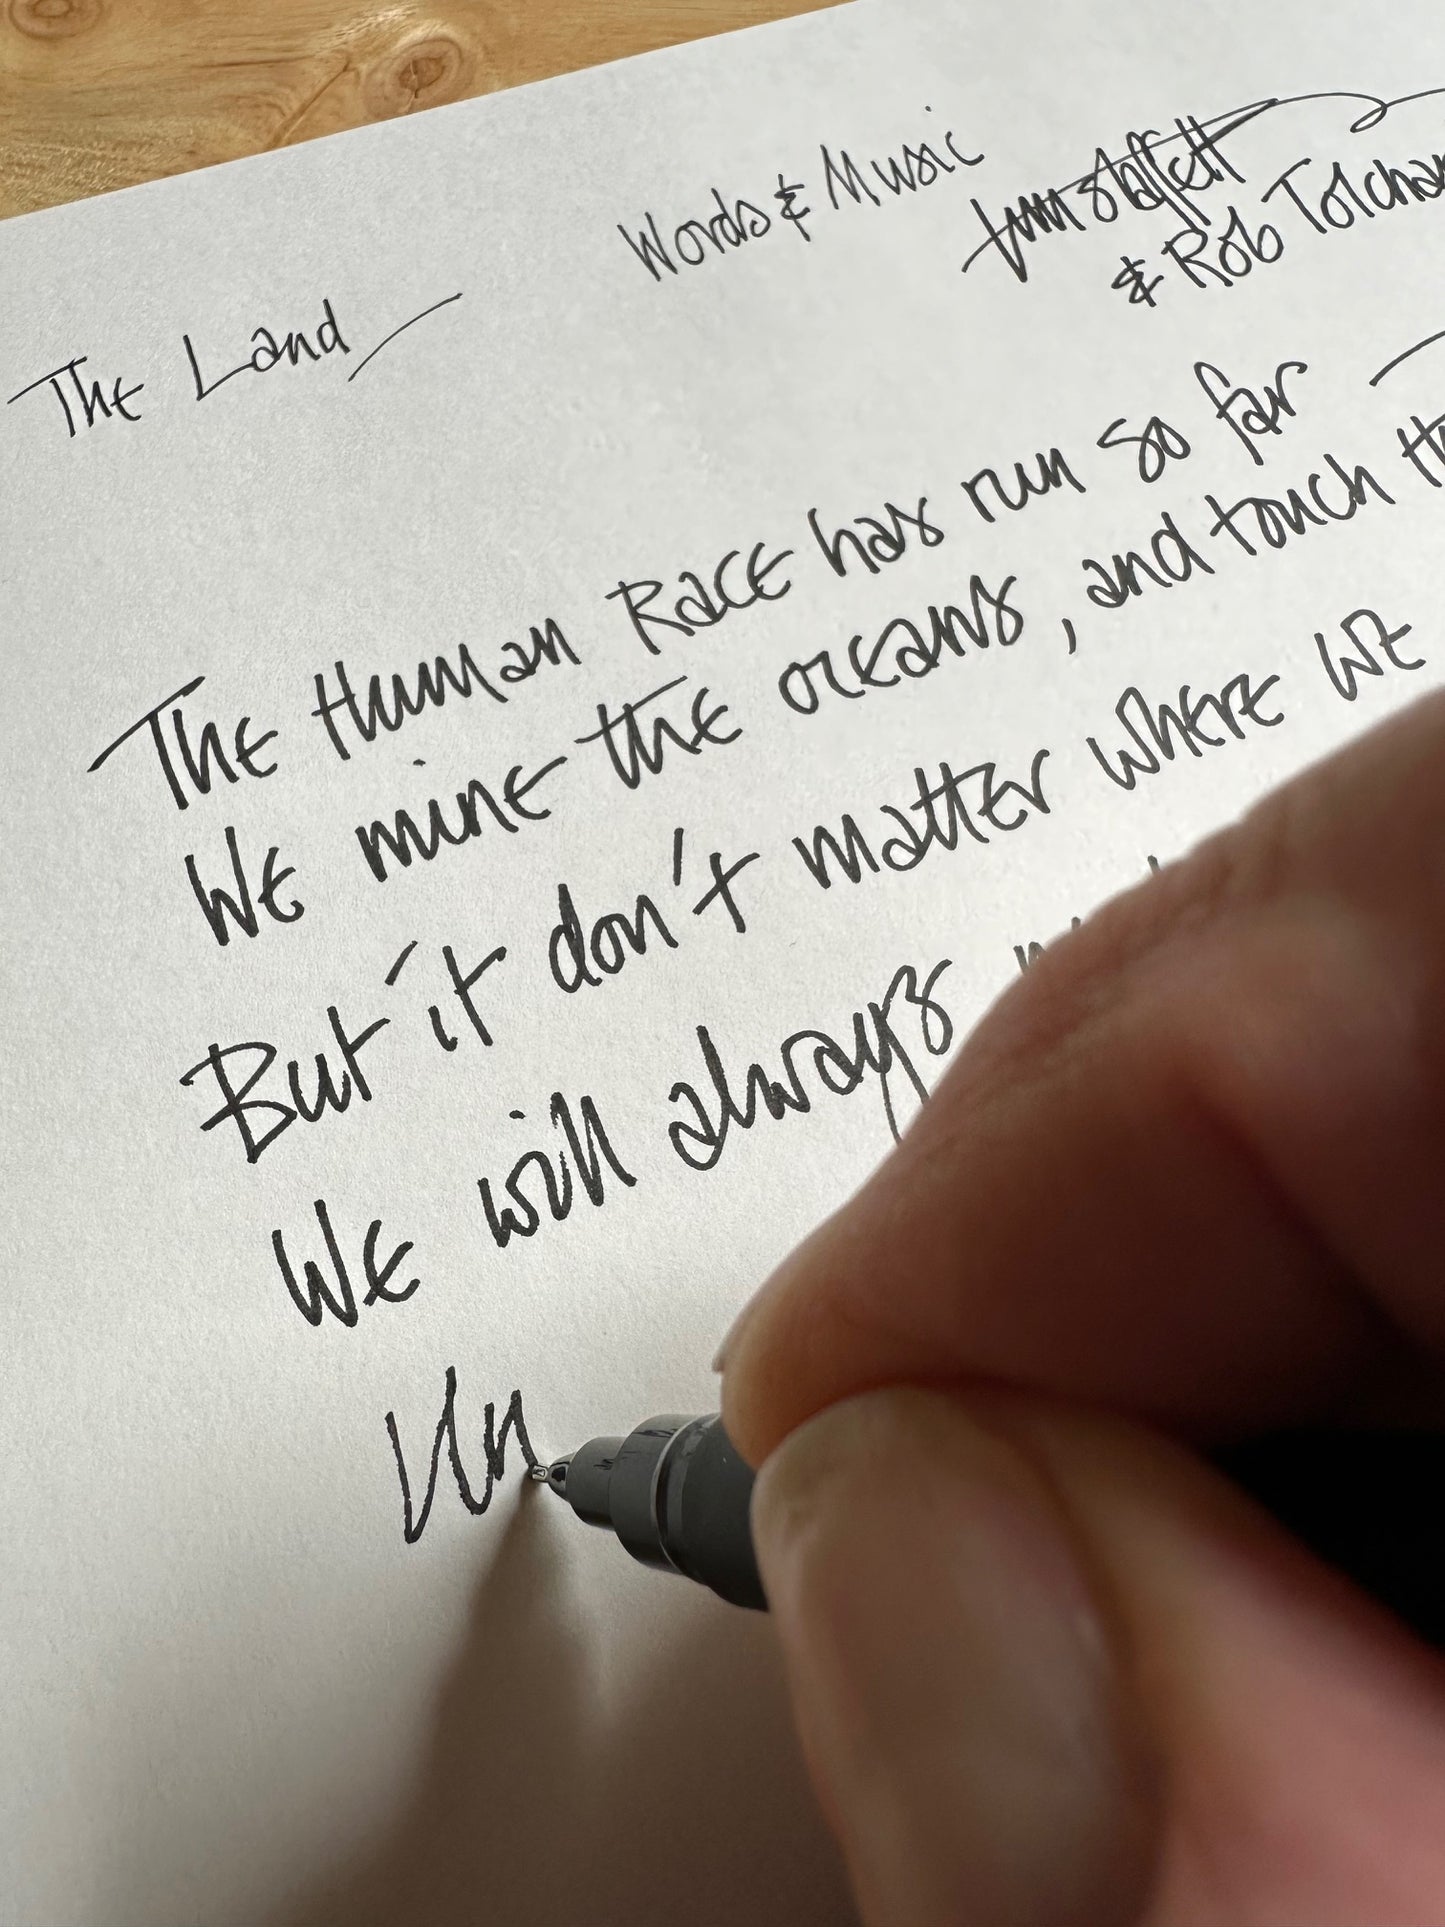 Words & Music
& Rob
The Land
The Human Race has run so far
We mine the oceans, and touch
But it don't matter where we
We will always
Un